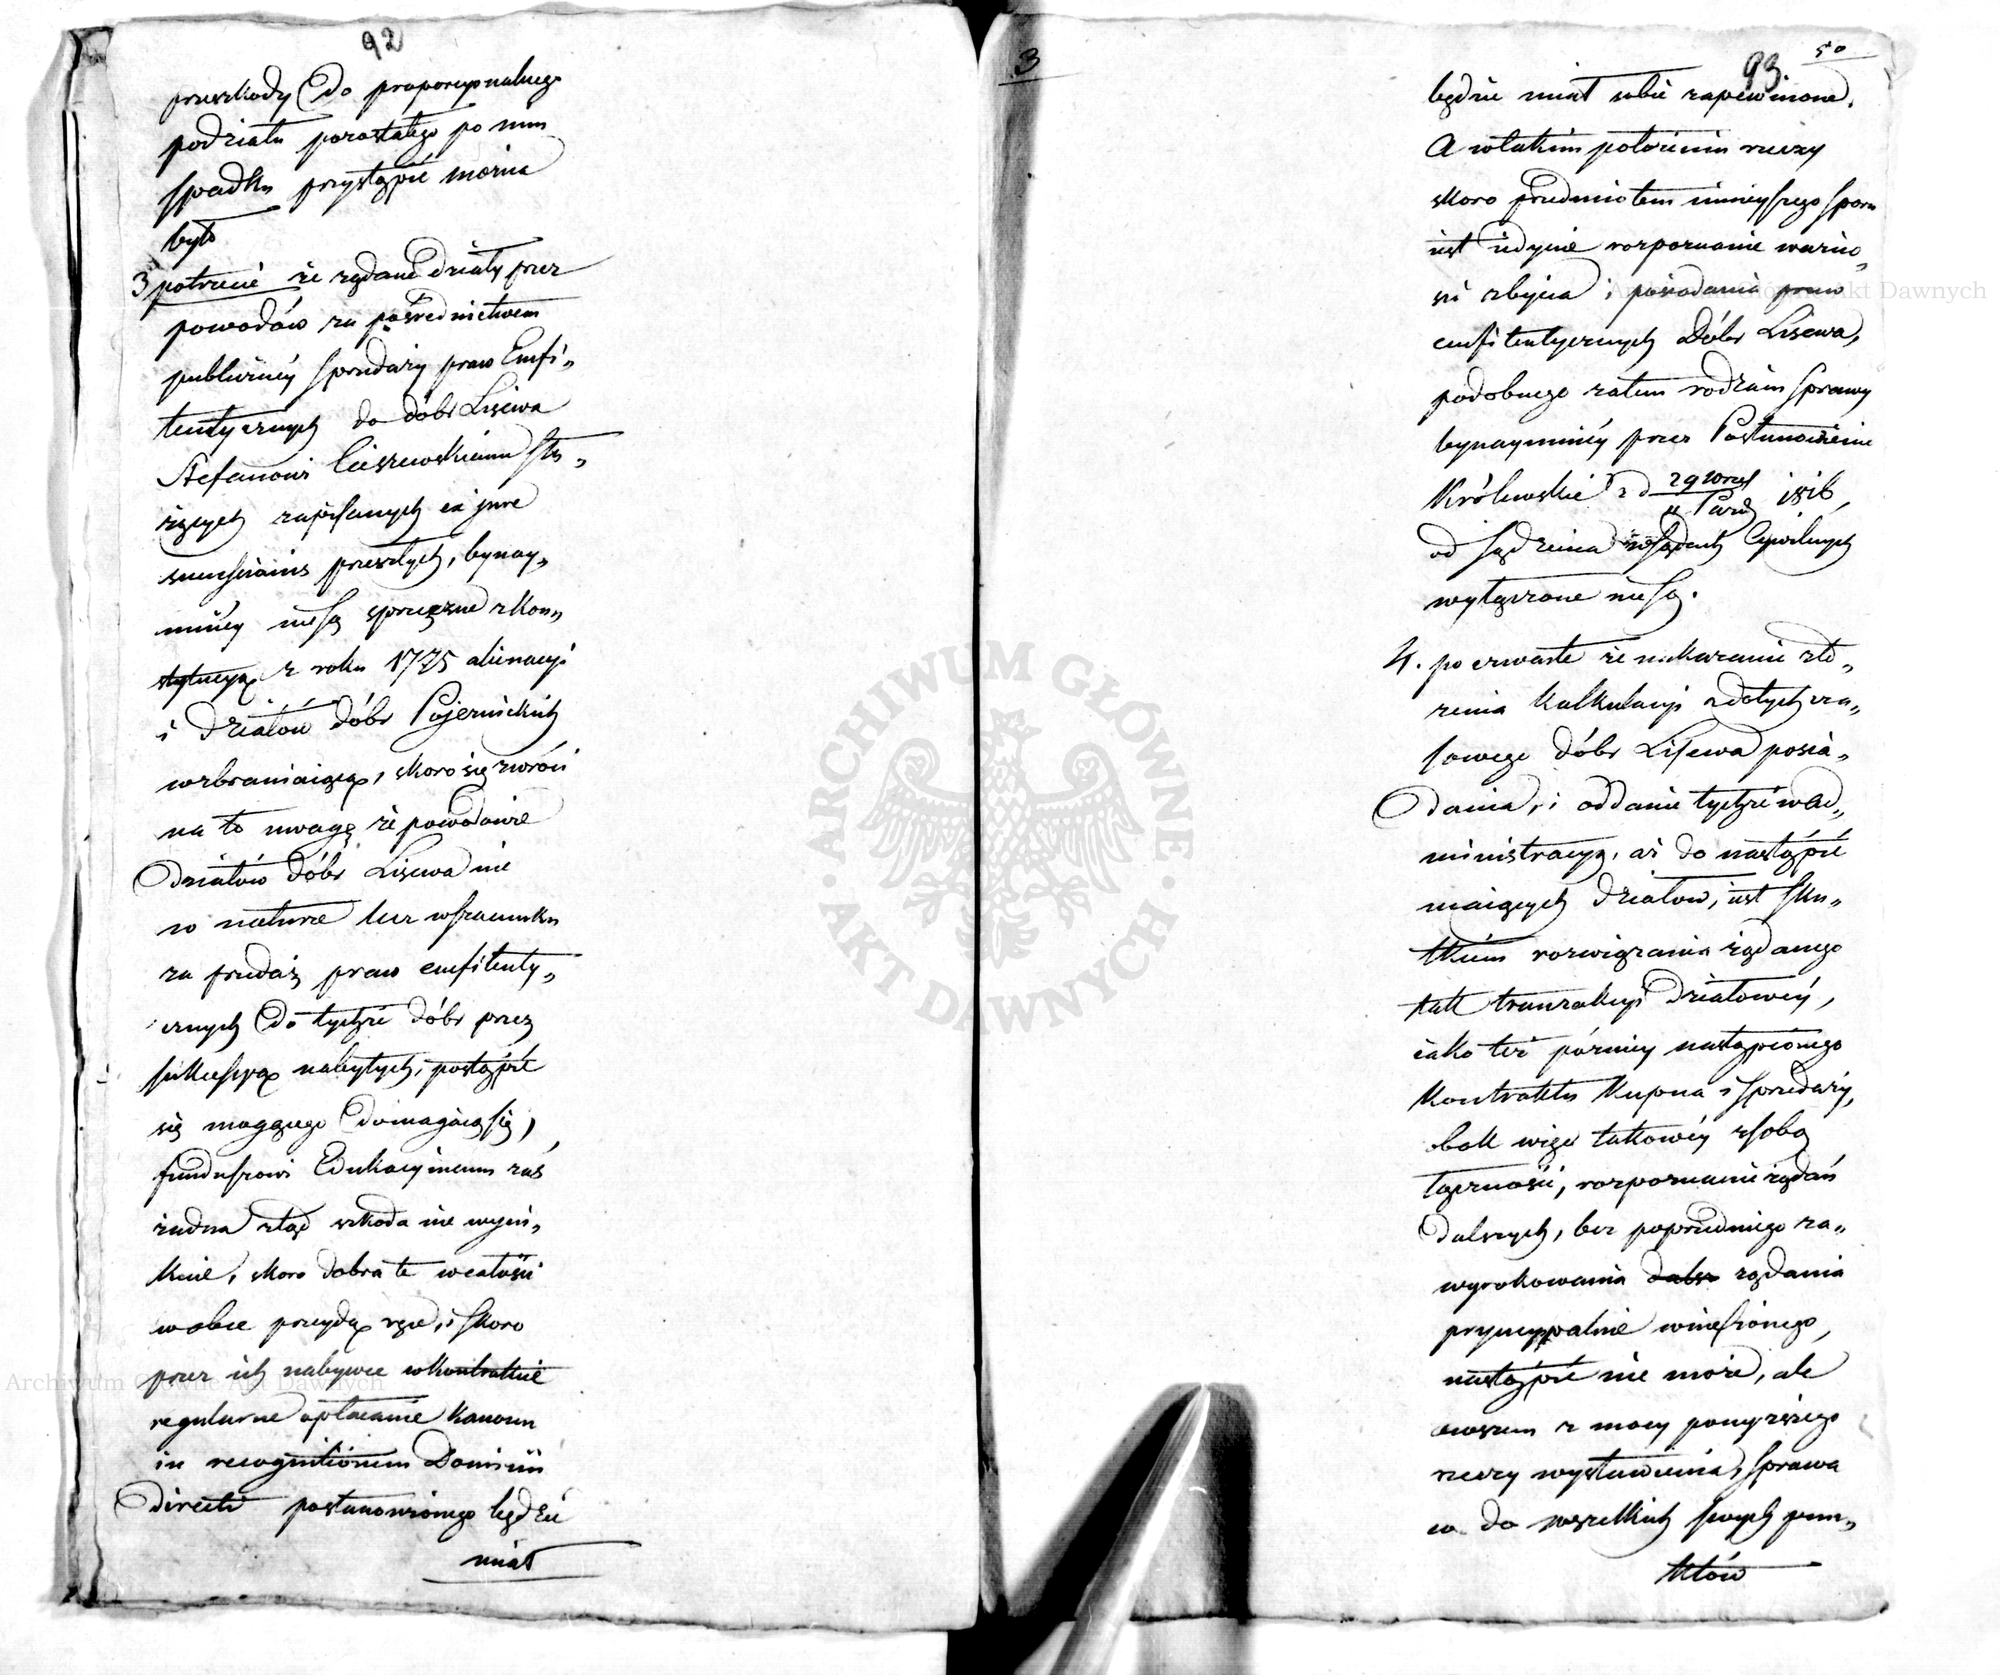 92
przeszkody do proporcyonalnego
podziału pozostałego po nim
spadku przystąpić można
było
3 potrzecie że żądane działy przez
powodów za pośrednictwem
publicznéy sprzedaży praw Emfi„
teutycznych do dóbr Lisewa
Stefanowi Ciszewskiemu słu„
żących zapisanych ex jure
przeszłych, bynay„
mniéy niesą sprzeczne zkon„
stytucyą z roku 1775 alienacyi
i działów dóbr Pojezuickich
wzbraniaiącą, skoro się zwróci
na to uwagę że powodowie
działów dóbr Lisewa nie
w naturze lecz wszacunku
za przedaż praw emfiteuty„
cznych do tychże dóbr przez
sukcessyą nabytych, postąpić
się mogącego domagaią się,
funduszowi Edukacyinemu zaś
żadna ztąd szkoda nie wyni„
knie, skoro dobra te wcałości
w obce przeydą ręce, i skoro
przez ich nabywce wkontrakcie
regularne opłacanie kanonu
in recognitionem Dominii
directi postanowionego będzie
miał
3
93
50
będzie miał sobie zapewnione.
A wtakim położeniu rzeczy
skoro przedmiotem ninieyszego sporu
iest iedynie rozpoznanie ważno„
ści zbycia i posiadania praw
emfiteutycznych Dóbr Lisewa,
podobnego zatem rodzaiu sprawy
bynaymniéy przez Postanowienie
Królewskie z d 1816,
od sądzenia wsądach Cywilnych
wyłączone niesą.
4. po czwarte że nakazanie zło„
żenia kalkulacyi zdotychcza„
sowego dóbr Lisewa posia„
dania, i oddanie tychże wAd„
ministracyą, aż do nastąpić
maiących działów, iest sku„
tkiem rozwiązania żądanego
tak tranzakcyi działowéy,
iako też pózniéy nastąpionego
kontraktu kupna i sprzedaży,
bok więc takowéy zsobą
łączności, rozpoznanie żądań
dalszych, bez poprzedniego za„
wyrokowania dalsz żądania
pryncypalnie wniesionego,
nastąpić nie może, ale
owszem z mocy powyższego
rzeczy wystawienia, sprawa
co do wszelkich swych pun„
któw
ARCHIWUM GŁÓWNE
AKT DAWNYCH
Archiwum Główne Akt Dawnych
Archiwum Główne Akt Dawnych